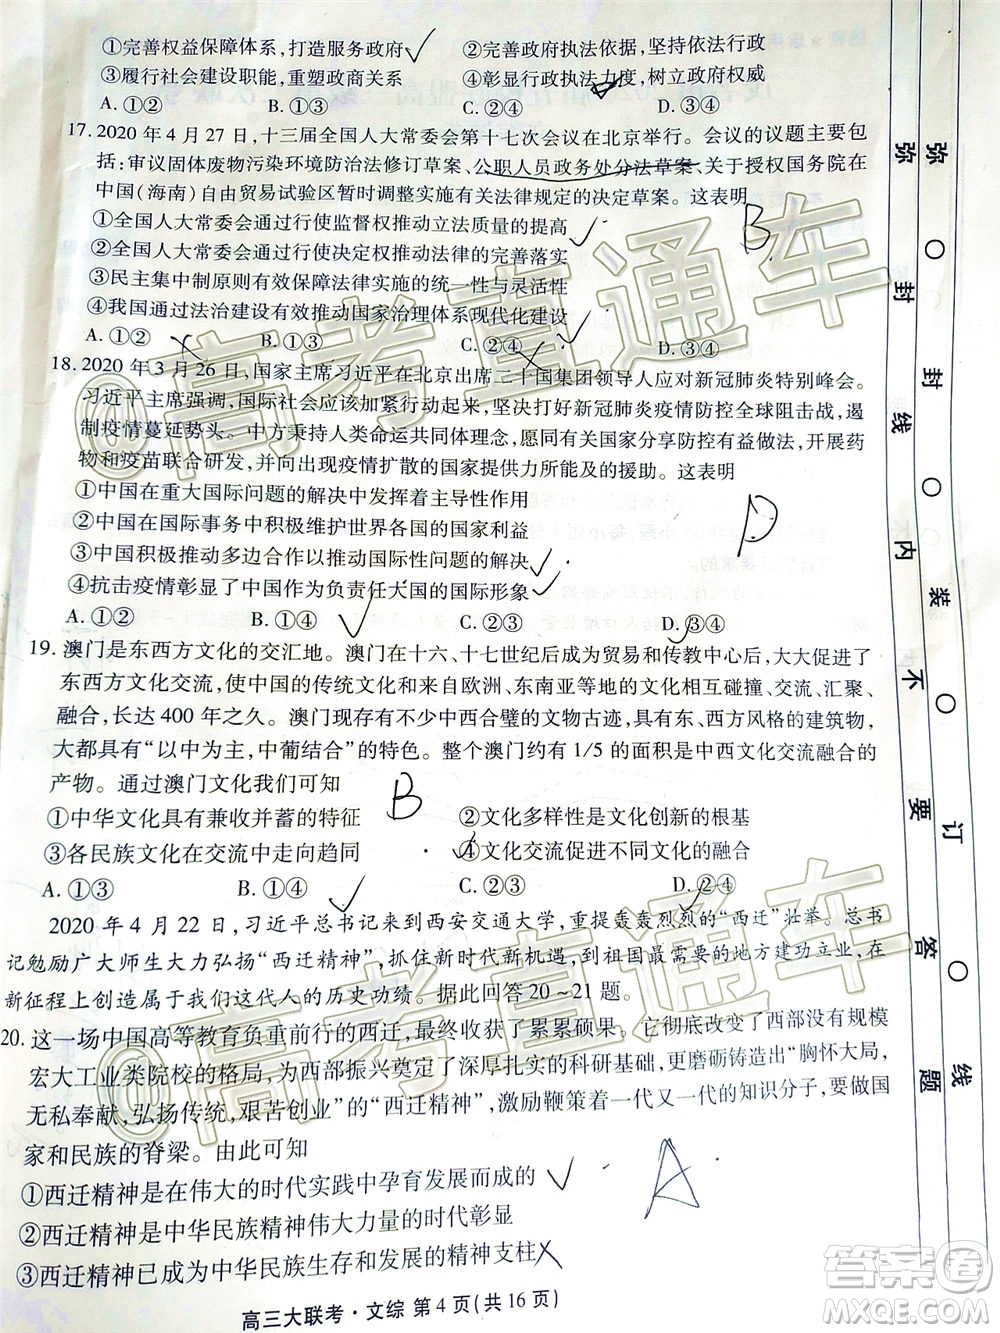 ①完善权益保障体系,打造服务政府 ②完善政府执法依据,坚持依法行政
③履行社会建设职能,重塑政商关系 ④加强政府执法力度,树立政府权威
A. ①② B. ①③ C. ②④ D. ③④
17. 2020 年 4 月 27 日,十三届全国人大常委会第十七次会议在北京举行。会议的议题主要包
括:审议固体废物污染环境防治法修订草案、公职人员政务处分法草案、关于授权国务院在
中国(海南)自由贸易试验区暂时调整实施有关法律规定的决定草案。这表明
①全国人大常委会通过行使监督权推动立法质量的提高
②全国人大常委会通过行使决定权推动法律的完善落实
③民主集中制原则有效保证法律实施的统一性与灵活性
④我国通过法治建设有效推动国家治理体系现代化建设
A. ①② B. ①③ C. ②④ D. ③④
B
18. 2020 年 3 月 26 日,国家主席习近平在北京出席二十国集团领导人应对新冠肺炎特别峰会。
习近平主席强调,国际社会应该加紧行动起来,坚决打好新冠肺炎疫情防控全球阻击战,遏
制疫情蔓延势头。中方秉持人类命运共同体理念,愿同有关国家分享防控有益做法,开展药
物和疫苗联合研发,并向出现疫情扩散的国家提供力所能及的援助。这表明
①中国在重大国际问题的解决中发挥着主导性作用
②中国在国际事务中积极维护世界各国的国家利益
③中国积极推动多边合作以推动国际性问题的解决
④抗击疫情彰显了中国作为负责任大国的国际形象
A. ①② B. ①③ C. ②④ D. ③④
D
19. 澳门是东西方文化的交汇地。澳门在十六、十七世纪后成为贸易和传教中心后,大大促进了
东西方文化交流,使中国的传统文化和来自欧洲、东南亚等地的文化相互碰撞、交流、汇聚、
融合,长达 400 年之久。澳门现存有不少中西合璧的文物古迹,具有东、西方风格的建筑物,
大都具有“以中为主,中葡结合”的特色。整个澳门约有 1/5 的面积是中西文化交流融合的
产物。通过澳门文化我们可知
B
①中华文化具有兼收并蓄的特征 ②文化多样性是文化创新的根基
③各民族文化在交流中走向趋同 ④文化交流促进不同文化的融合
A. ①③ B. ①④ C. ②③ D. ②④
2020 年 4 月 22 日,习近平总书记来到西安交通大学,重提轰轰烈烈的“西迁”壮举。总书
记勉励广大师生大力弘扬“西迁精神”,抓住新时代新机遇,到祖国最需要的地方建功立业,在
新征程上创造属于我们这代人的历史功绩。据此回答20~21题。
20. 这一场中国高等教育负重前行的西迁,最终收获了累累硕果。它彻底改变了西部没有规模
宏大工业类院校的格局,为西部振兴奠定了深厚扎实的科研基础,更磨砺铸造出“胸怀大局,
无私奉献,弘扬传统,艰苦创业”的“西迁精神”,激励鞭策着一代又一代的知识分子,要做国
家和民族的脊梁。由此可知
①西迁精神是在伟大的时代实践中孕育发展而成的
②西迁精神是中华民族精神伟大力量的时代彰显
③西迁精神已成为中华民族生存和发展的精神支柱
A
高三大联考·文综 第 4 页(共 16 页)
弥 封 线 内 不 要 答 题
弥 封 装 订 线
@高考直通车
@高考直通车
答案圈
MXQE.COM